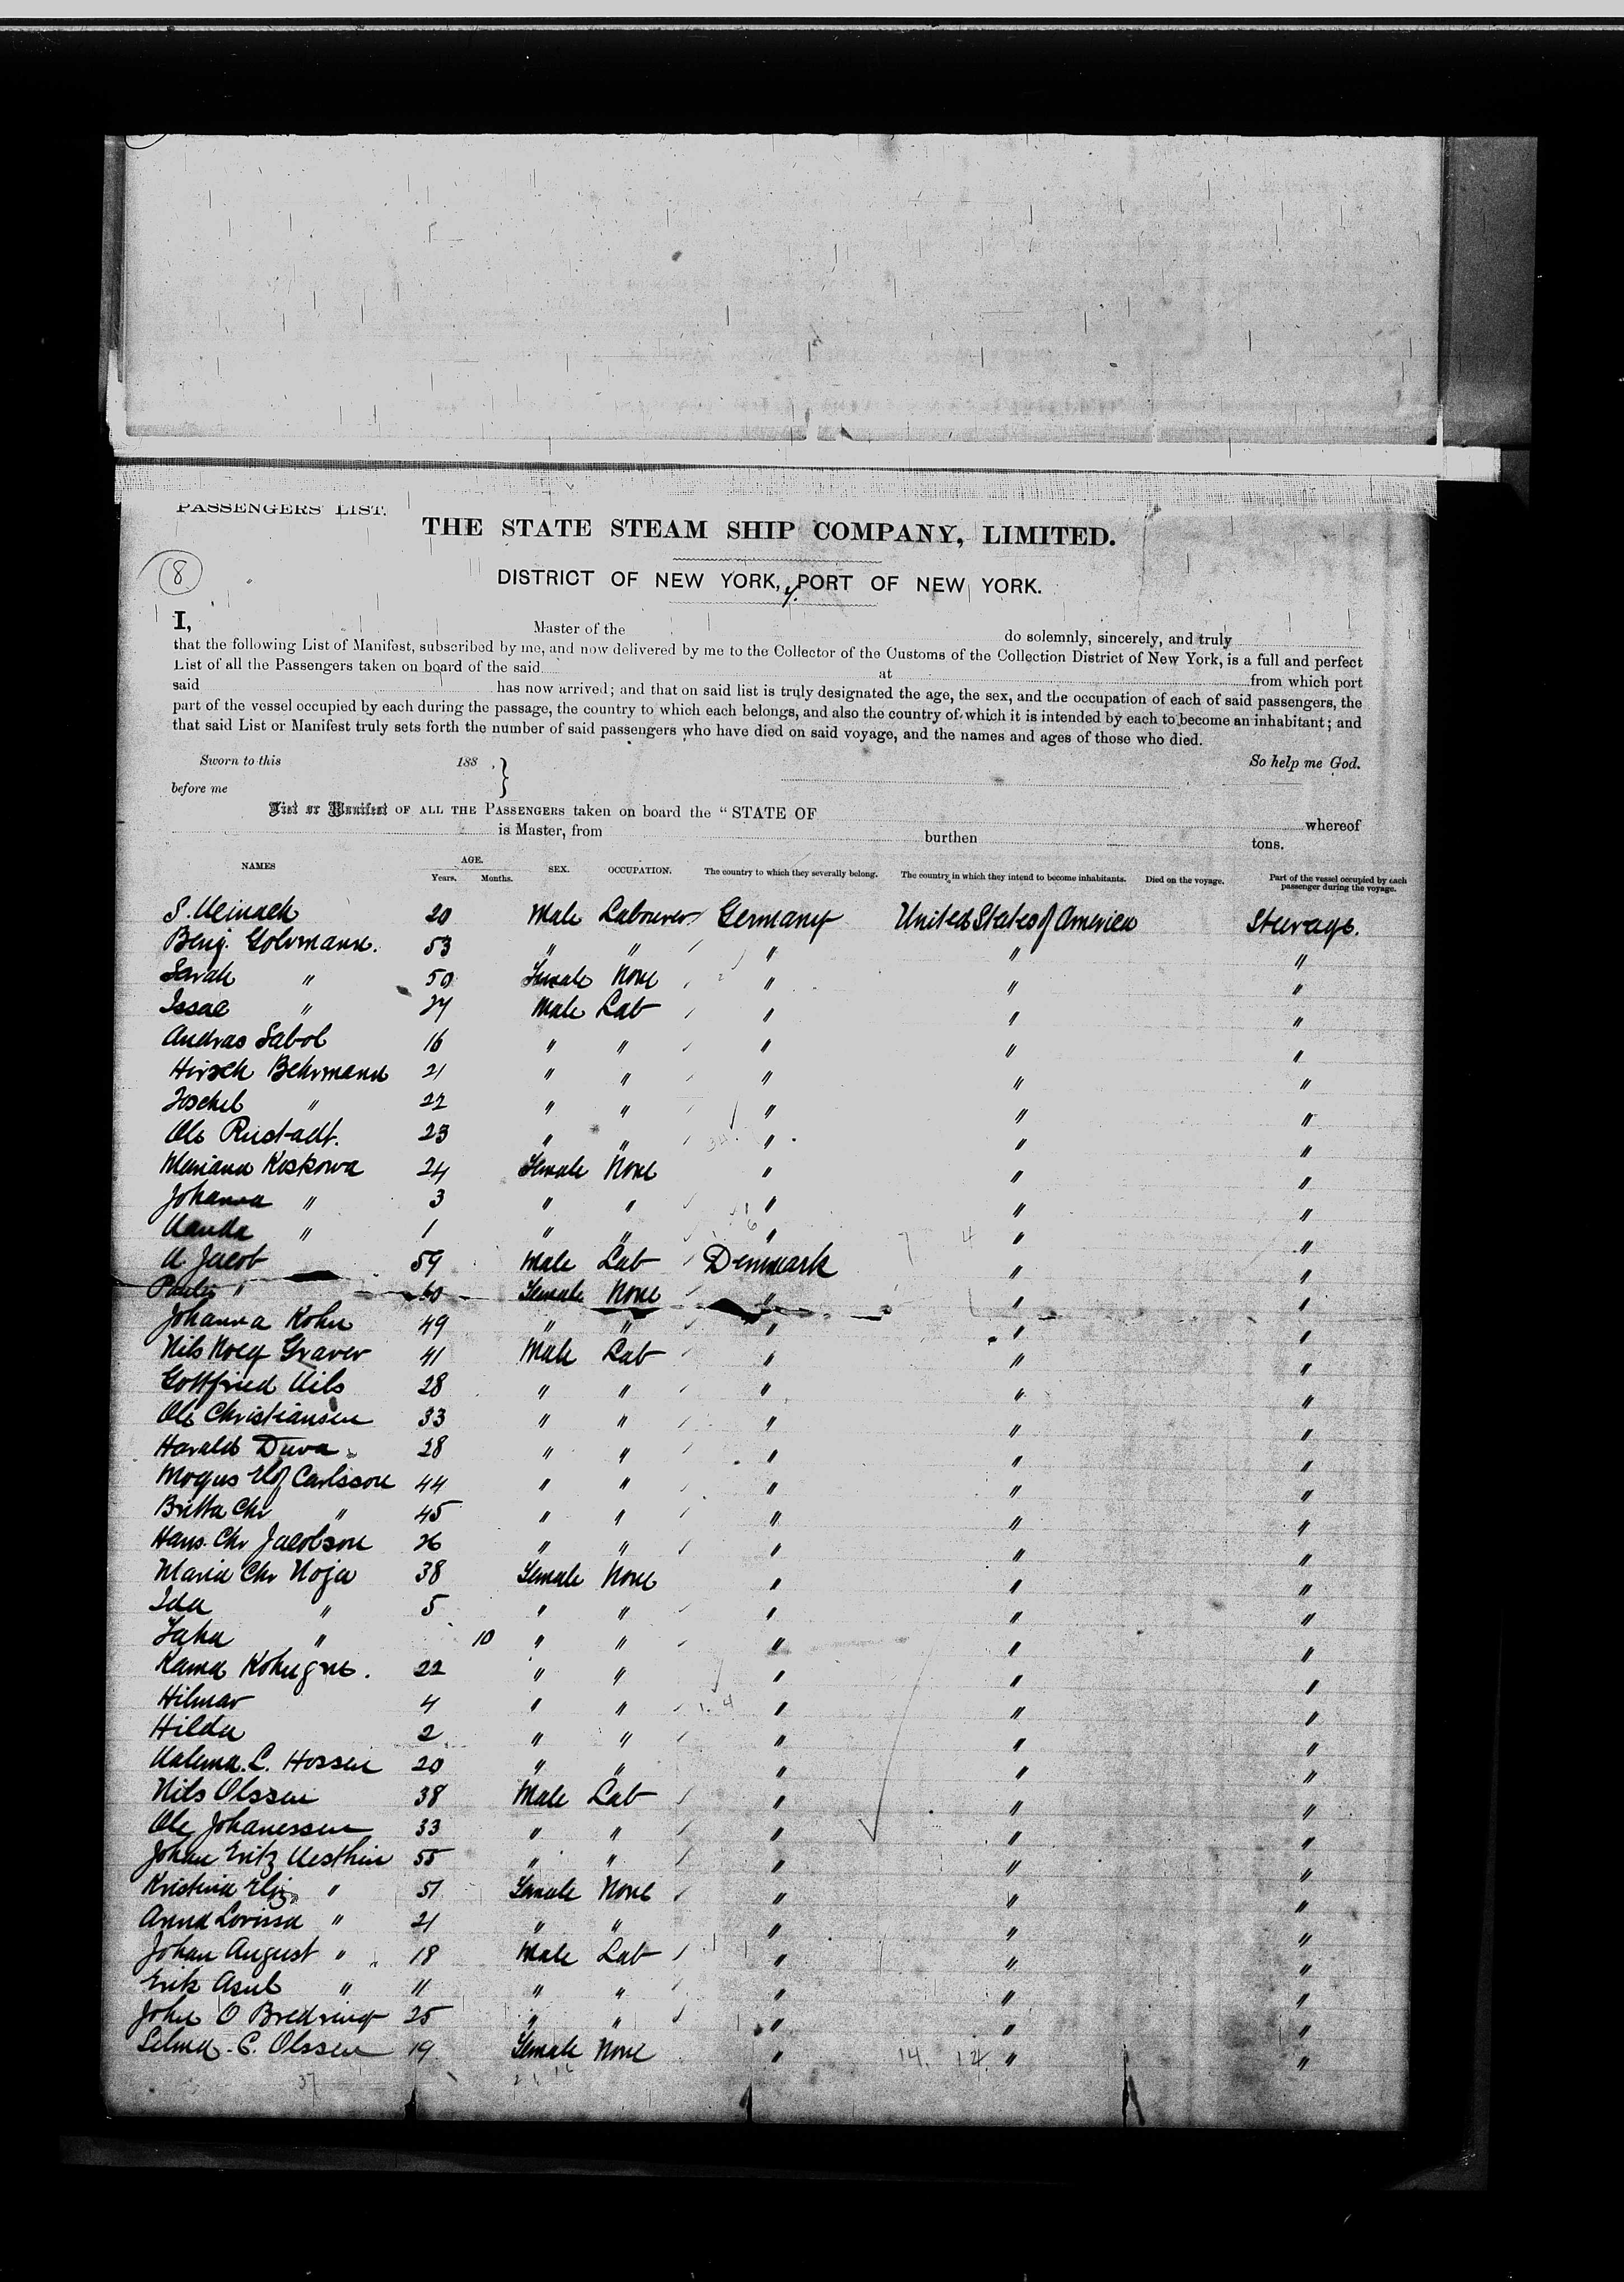 PASSENGERS' LIST.
THE STATE STEAM SHIP COMPANY, LIMITED.
8
DISTRICT OF NEW YORK, PORT OF NEW YORK.
I, Master of the do solemnly, sincerely, and truly
that the following List of Manifest, subscribed by me, and now delivered by me to the Collector of the Customs of the Collection District of New York, is a full and perfect
List of all the Passengers taken on board of the said at from which port
said has now arrived; and that on said list is truly designated the age, the sex, and the occupation of each of said passengers, the
part of the vessel occupied by each during the passage, the country to which each belongs, and also the country of which it is intended by each to become an inhabitant; and
that said List or Manifest truly sets forth the number of said passengers who have died on said voyage, and the names and ages of those who died.
Sworn to this 188 , } So help me God.
before me
List or Manifest OF ALL THE PASSENGERS taken on board the "STATE OF whereof
is Master, from burthen tons.
NAMES AGE. Years. Months. SEX. OCCUPATION. The country to which they severally belong. The country in which they intend to become inhabitants. Died on the voyage. Part of the vessel occupied by each passenger during the voyage.
S. 20 Male Labourer Germany United States of America Steerage.
Benj. Gohrmann. 53 " " " " "
Sarah " 50 Female None " " "
Issac " 27 Male Lab " " "
Andras Sabol 16 " " " " "
Hirsch Behrmann 21 " " " " "
" 22 " " " " "
Ole Rustadt. 23 " " " " "
Mariana Koskowa 24 Female None " " "
Johanna " 3 " " " " "
" 1 " " " " "
Jacob 59 Male Lab Denmark " "
" 60 Female None " " "
Johanna Kohn 49 " " " " "
Nils Graver 41 Male Lab " " "
Gottfried Nils 28 " " " " "
Ole Christiansen 33 " " " " "
Harald Duva 28 " " " " "
Carlsson 44 " " " " "
Britta Chr " 45 " " " " "
Hans. Chr Jacobson 26 " " " " "
Maria Chr 38 Female None " " "
Ida " 5 " " " " "
" 10 " " " " "
22 " " " " "
Hilmar 4 " " " " "
Hilda 2 " " " " "
L. Hossen 20 " " " " "
Nils Olssen 38 Male Lab " " "
Ole Johanessen 33 " " " " "
Johan 55 " " " " "
Kristina Eliz. " 51 Female None " " "
Anna Lovissa " 21 " " " " "
Johan August " 18 Male Lab " " "
Erik " 11 " " " " "
John O 25 " " " " "
Selma C. Olssen 19 Female None " 14. 12. " "
37